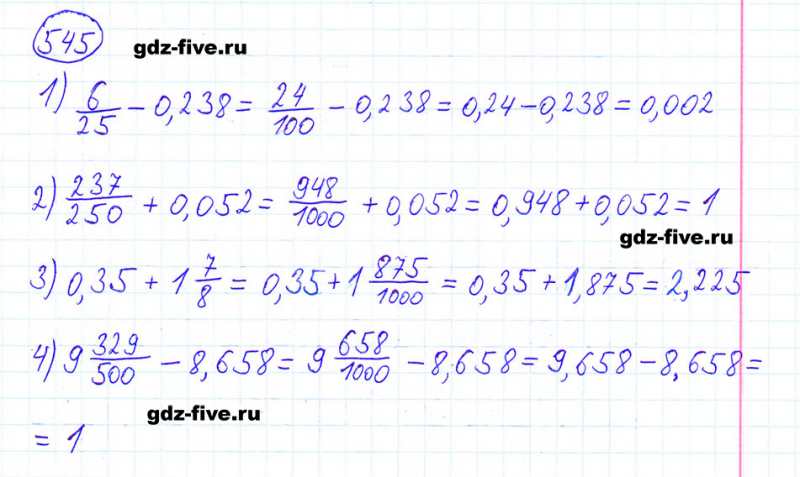 545 gdz-five.ru
1) 6/25 - 0,238 = 24/100 - 0,238 = 0,24 - 0,238 = 0,002
2) 237/250 + 0,052 = 948/1000 + 0,052 = 0,948 + 0,052 = 1
gdz-five.ru
3) 0,35 + 1 7/8 = 0,35 + 1 875/1000 = 0,35 + 1,875 = 2,225
4) 9 329/500 - 8,658 = 9 658/1000 - 8,658 = 9,658 - 8,658 =
gdz-five.ru
= 1